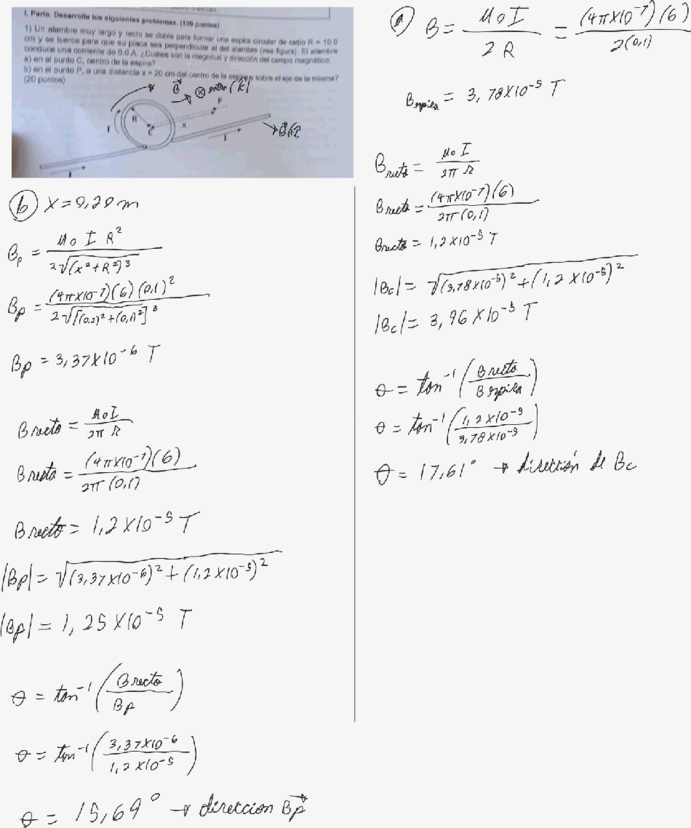 I. Parte. Desarrolle los siguientes problemas. (100 puntos)
1) Un alambre muy largo y recto se dobla para formar una espira circular de radio R = 10.0
cm y se tuerce para que su placa sea perpendicular al del alambre (vea figura). El alambre
conduce una corriente de 6.0 A. ¿Cuáles son la magnitud y dirección del campo magnético:
a) en el punto C, centro de la espira?
b) en el punto P, a una distancia x = 20 cm del centro de la espira y sobre el eje de la misma?
(20 puntos)
B
R
C
x
P
I
I
I
b) x = 0,20 m
Bp = μ0 I R² / 2√(x²+R²)³
Bp = (4π×10⁻⁷)(6)(0,1)² / 2√[(0,2)²+(0,1)²]³
Bp = 3,37×10⁻⁶ T
Brecto = μ0 I / 2π R
Brecto = (4π×10⁻⁷)(6) / 2π (0,1)
Brecto = 1,2×10⁻⁵ T
|Bp| = √(3,37×10⁻⁶)² + (1,2×10⁻⁵)²
|Bp| = 1,25×10⁻⁵ T
θ = tan⁻¹ (Brecto / Bp)
θ = tan⁻¹ (3,37×10⁻⁶ / 1,2×10⁻⁵)
θ = 15,69° → direccion Bp
a) B = μ0 I / 2 R = (4π×10⁻⁷)(6) / 2(0,1)
Bespira = 3,78×10⁻⁵ T
Brecto = μ0 I / 2π R
Brecto = (4π×10⁻⁷)(6) / 2π (0,1)
Brecto = 1,2×10⁻⁵ T
|Bc| = √(3,78×10⁻⁵)² + (1,2×10⁻⁵)²
|Bc| = 3,96×10⁻⁵ T
θ = tan⁻¹ (Brecto / Bespira)
θ = tan⁻¹ (1,2×10⁻⁵ / 3,78×10⁻⁵)
θ = 17,61° → dirección de Bc